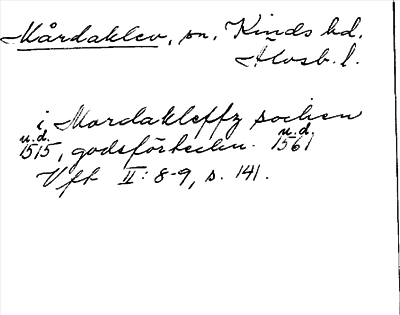 Mårdaklev, sn, Kinds hd.
Älvsb. l.
i Mordakleffz sochen
u.d. 1515, godsförteckn. u.d. 1561
Vfb II: 8-9, s. 141.